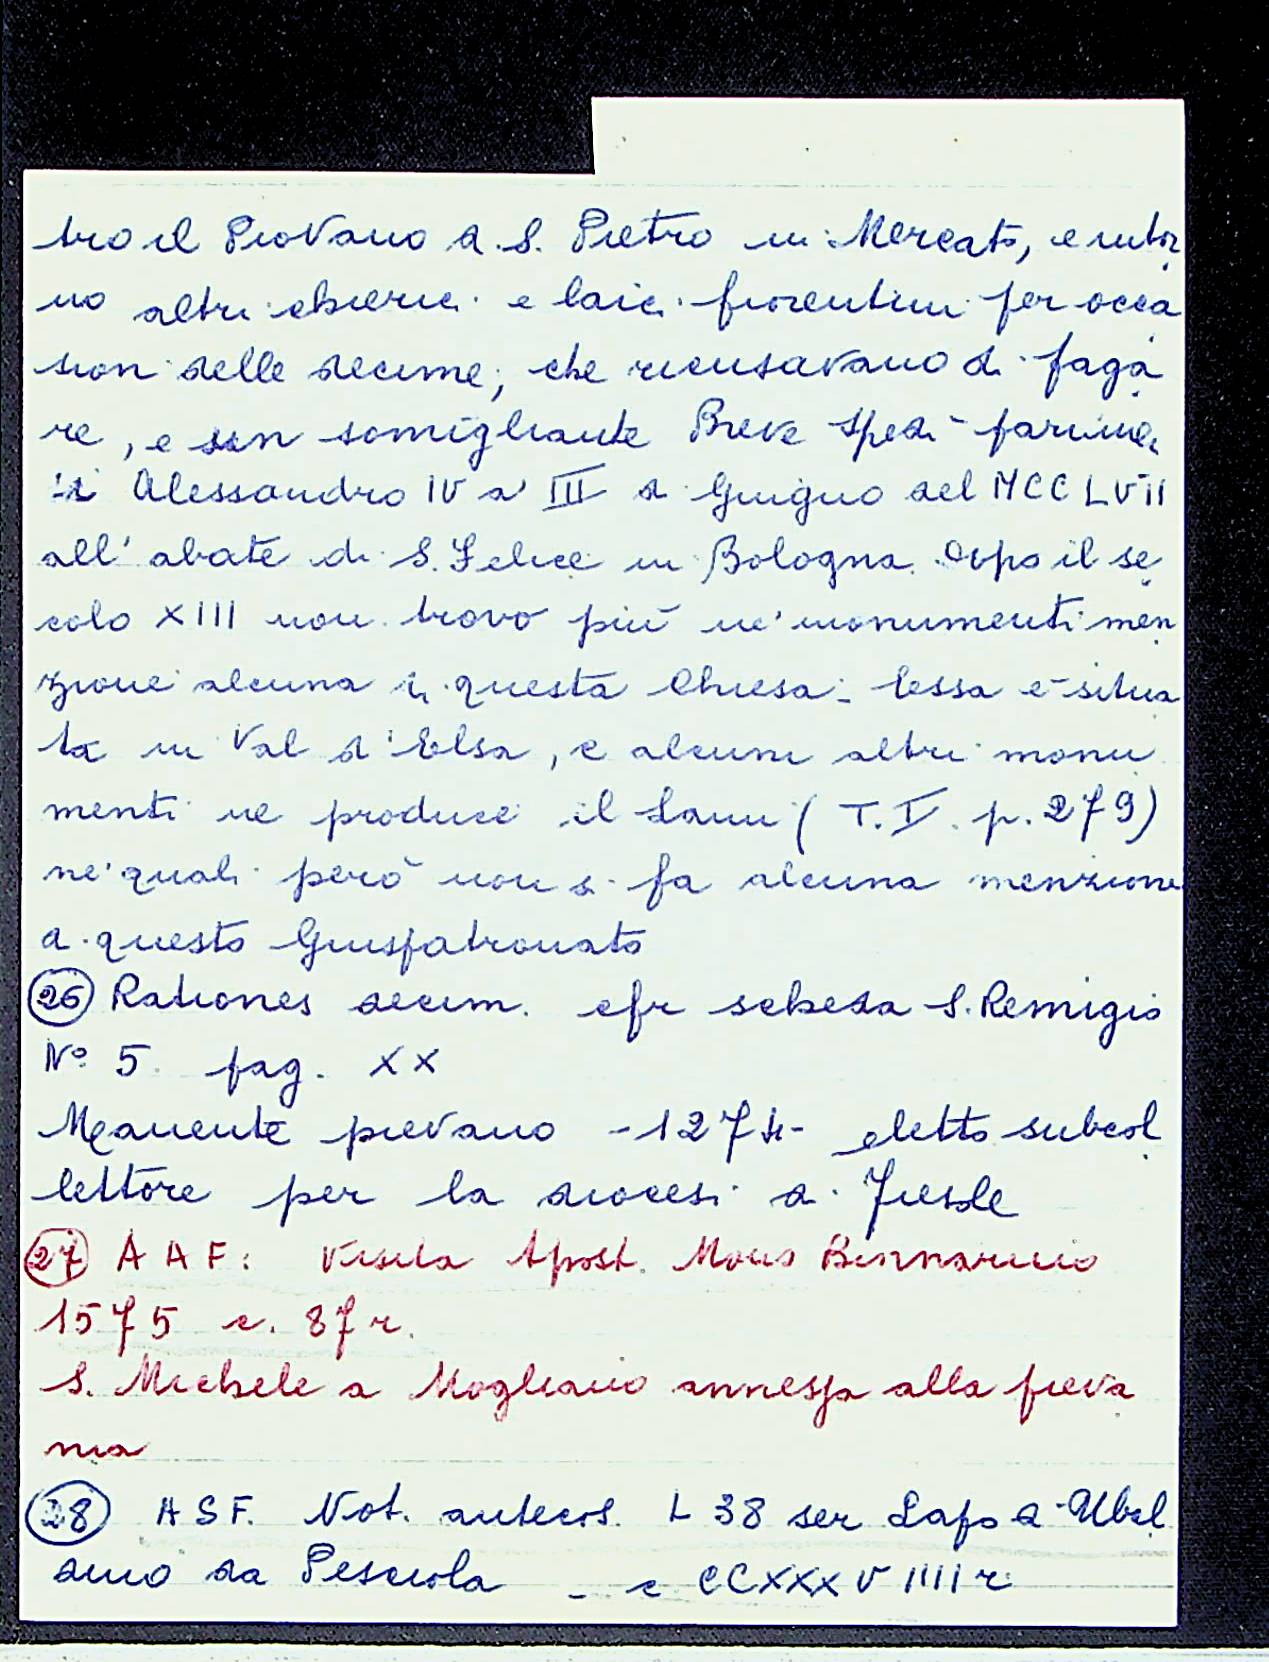 tro il Piovano di S. Pietro in Mercato, e intor
no altri chierici e laici fiorentini per occa
sion delle decime, che ricusavano di paga
re, e un somigliante Breve spedì parimen
ti Alessandro IV a' III di Giugno del MCCLVII
all' abate di S. Felice in Bologna. Dopo il se
colo XIII non trovo più ne' monumenti men
zione alcuna di questa Chiesa. Essa è situa
ta in Val d'Elsa, e alcuni altri monu
menti ne produce il Lami (T. I. p. 279)
ne' quali però non si fa alcuna menzione
di questo Giuspatronato
26 Rationes decim. cfr scheda S. Remigio
N° 5. pag. XX
Manente pievano - 1274 - eletto subcol
lettore per la diocesi di Fiesole
27 AAF: Visita Apost. Mons
1575 c. 87r.
S. Michele a Mogliano annessa alla pieva
nia
28 ASF. Not. antecos. L 38 ser Lapo di Ubal
dino da Pesciola - c CCXXXVIIII r